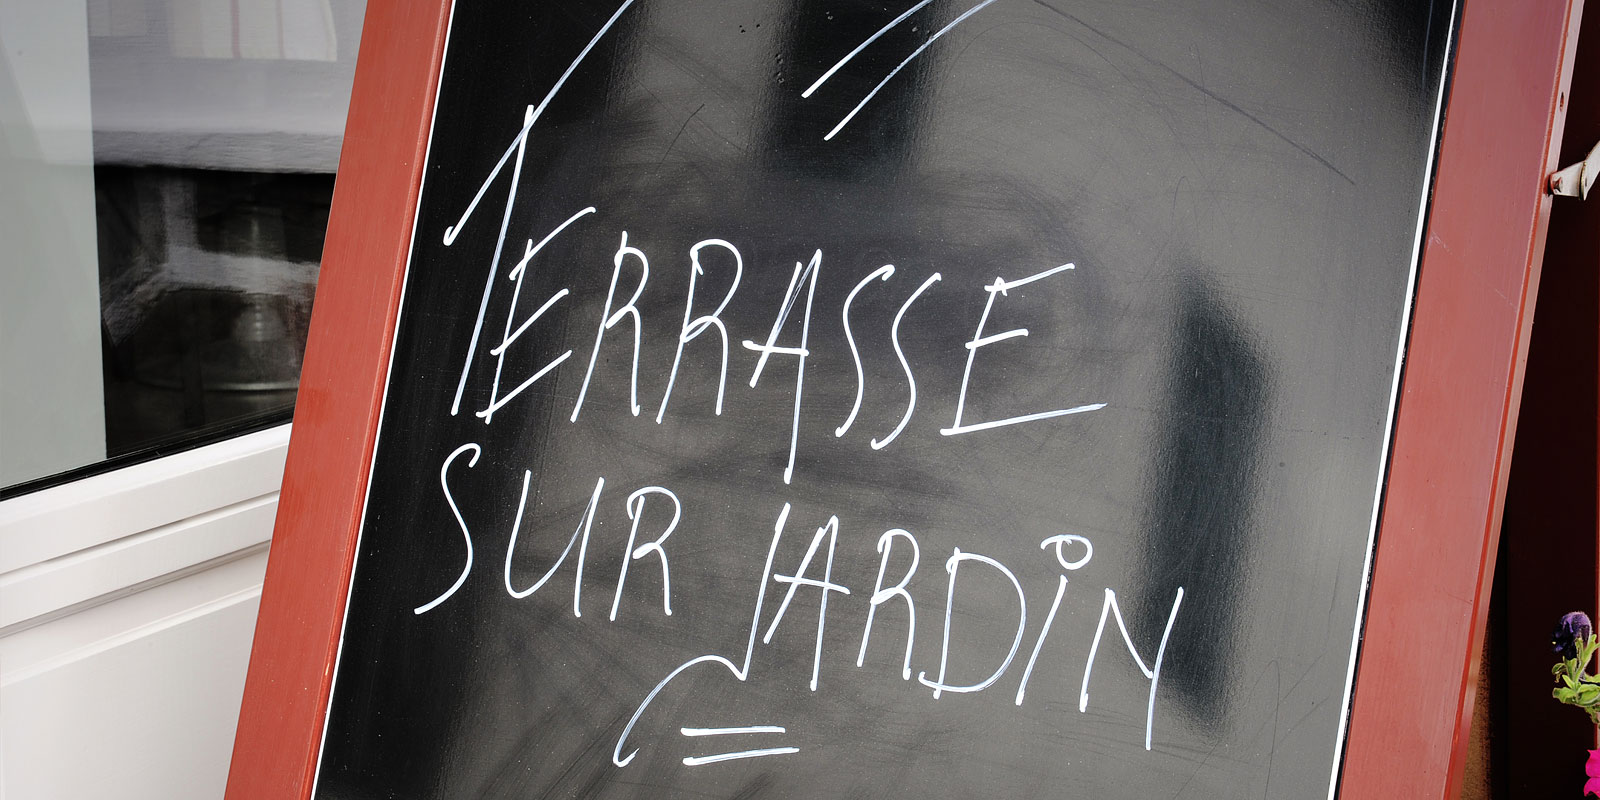 TERRASSE
SUR JARDiN